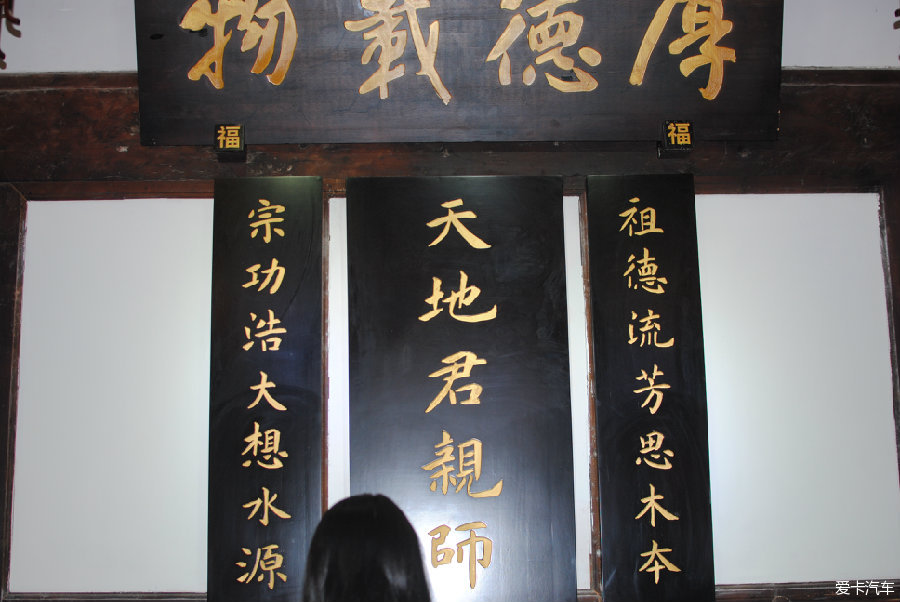 厚德載物
福
福
祖德流芳思木本
天地君親師
宗功浩大想水源
爱卡汽车